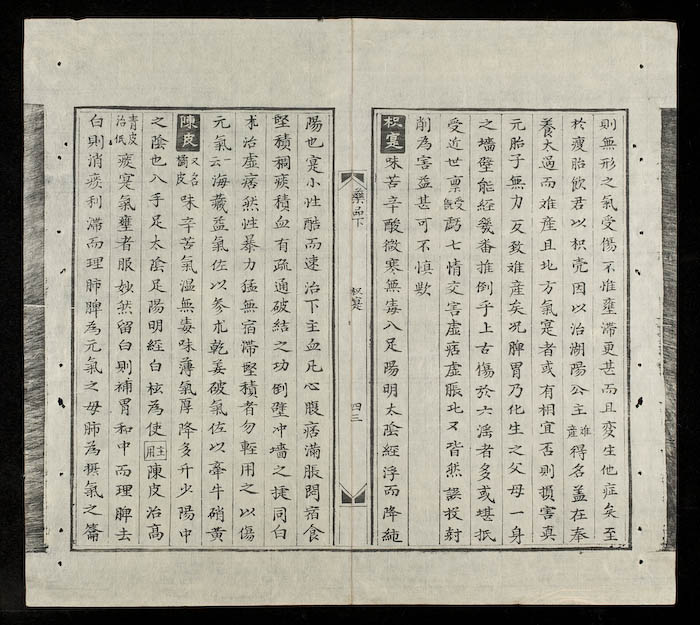 則無形之氣受傷不惟壅滯更甚而且変生他症矣至
於瘦胎飲君以枳壳因以治湖陽公主難產得名盖在奉
養太過而難産且北方氣寔者或有相宜否則損害真
元胎子無力反致難産矣况脾胃乃化生之父母一身
之墻壁能經幾番推倒乎上古傷於六滛者多或堪抵
受近世禀受既虧七情交害虚痞虚脹比又皆然誤投尅
削為害益甚可不慎歟
枳寔味苦辛酸微寒無毒入足陽明太陰經浮而降純
藥品下
枳寔
四三
陽也寔小性酷而速治下主血凡心腹痞滿脹悶宿食
堅積稠痰積血有疏通破結之功倒壁冲墻之捷同白
朮治虚痞然性暴力猛無宿滯堅積者勿輕用之以傷
元氣一云海藏益氣佐以參朮乾姜破氣佐以牽牛硝黃
陳皮又名橘皮味辛苦氣温無毒味薄氣厚降多升少陽中
之陰也入手足太陰足陽明經白檢為使主用陳皮治高
青皮治低痰寔氣壅者服妙然留白則補胃和中而理脾去
白則消痰利滯而理肺脾為元氣之母肺為摂氣之籥